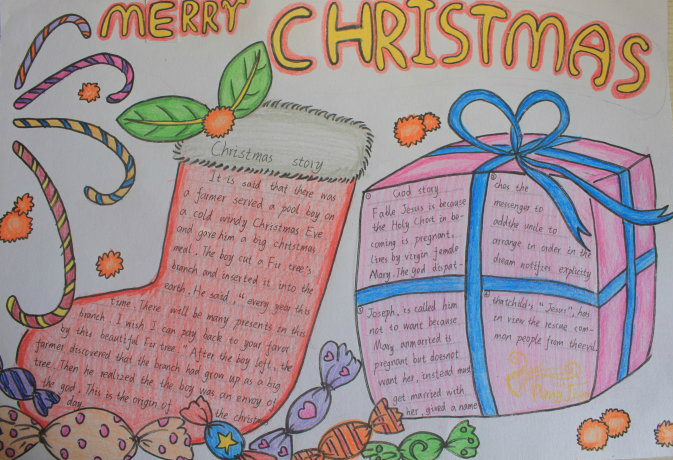 MERRY CHRISTMAS
Christmas story
It is said that there was
a farmer served a pool boy on
a cold windy Christmas Eve
and gave him a big christmas
meal. The boy cut a Fir tree's
branch and inserted it into the
earth. He said, "every year this
time. There will be many presents in this
branch. I wish I can pay back to your favor
by this beautiful Fir tree." After the boy left, the
farmer discovered that the branch had grow up as a big
tree. Then he realized the the boy was an envoy of
the god. This is the origin of the christmas
day.
① God story
Fable Jesus is because
the Holy Ghost in be-
coming is pregnant,
lives by virgin female
Mary. The god dispat-
② ches the
messenger to
addthe smile to
arrange in order in the
dream notifies explicity
③ Joseph, is called him
not to want because
Mary unmarried is
pregnant but doesnot
want her, instead must
get married with
her, gived a name
④ thatchild's "Jesus", has
in view the rescue com-
mon people from theevil.